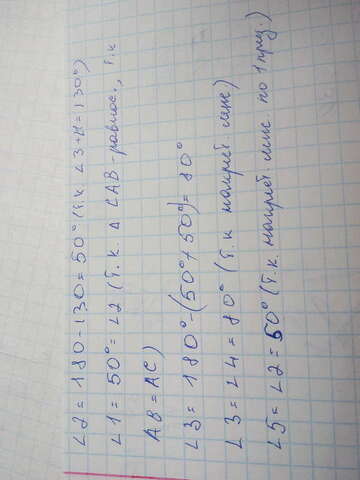 ∠2 = 180-130 = 50° (т.к ∠3+∠4=130°)
∠1 = 50° = ∠2 (т.к. Δ CAB - равнос., т.к
AB = AC)
∠3 = 180° - (50° + 50°) = 80°
∠3 = ∠4 = 80° (т.к накрест. лжс)
∠5 = ∠2 = 50° (т.к. накрест. лжс. по 1 приз.)